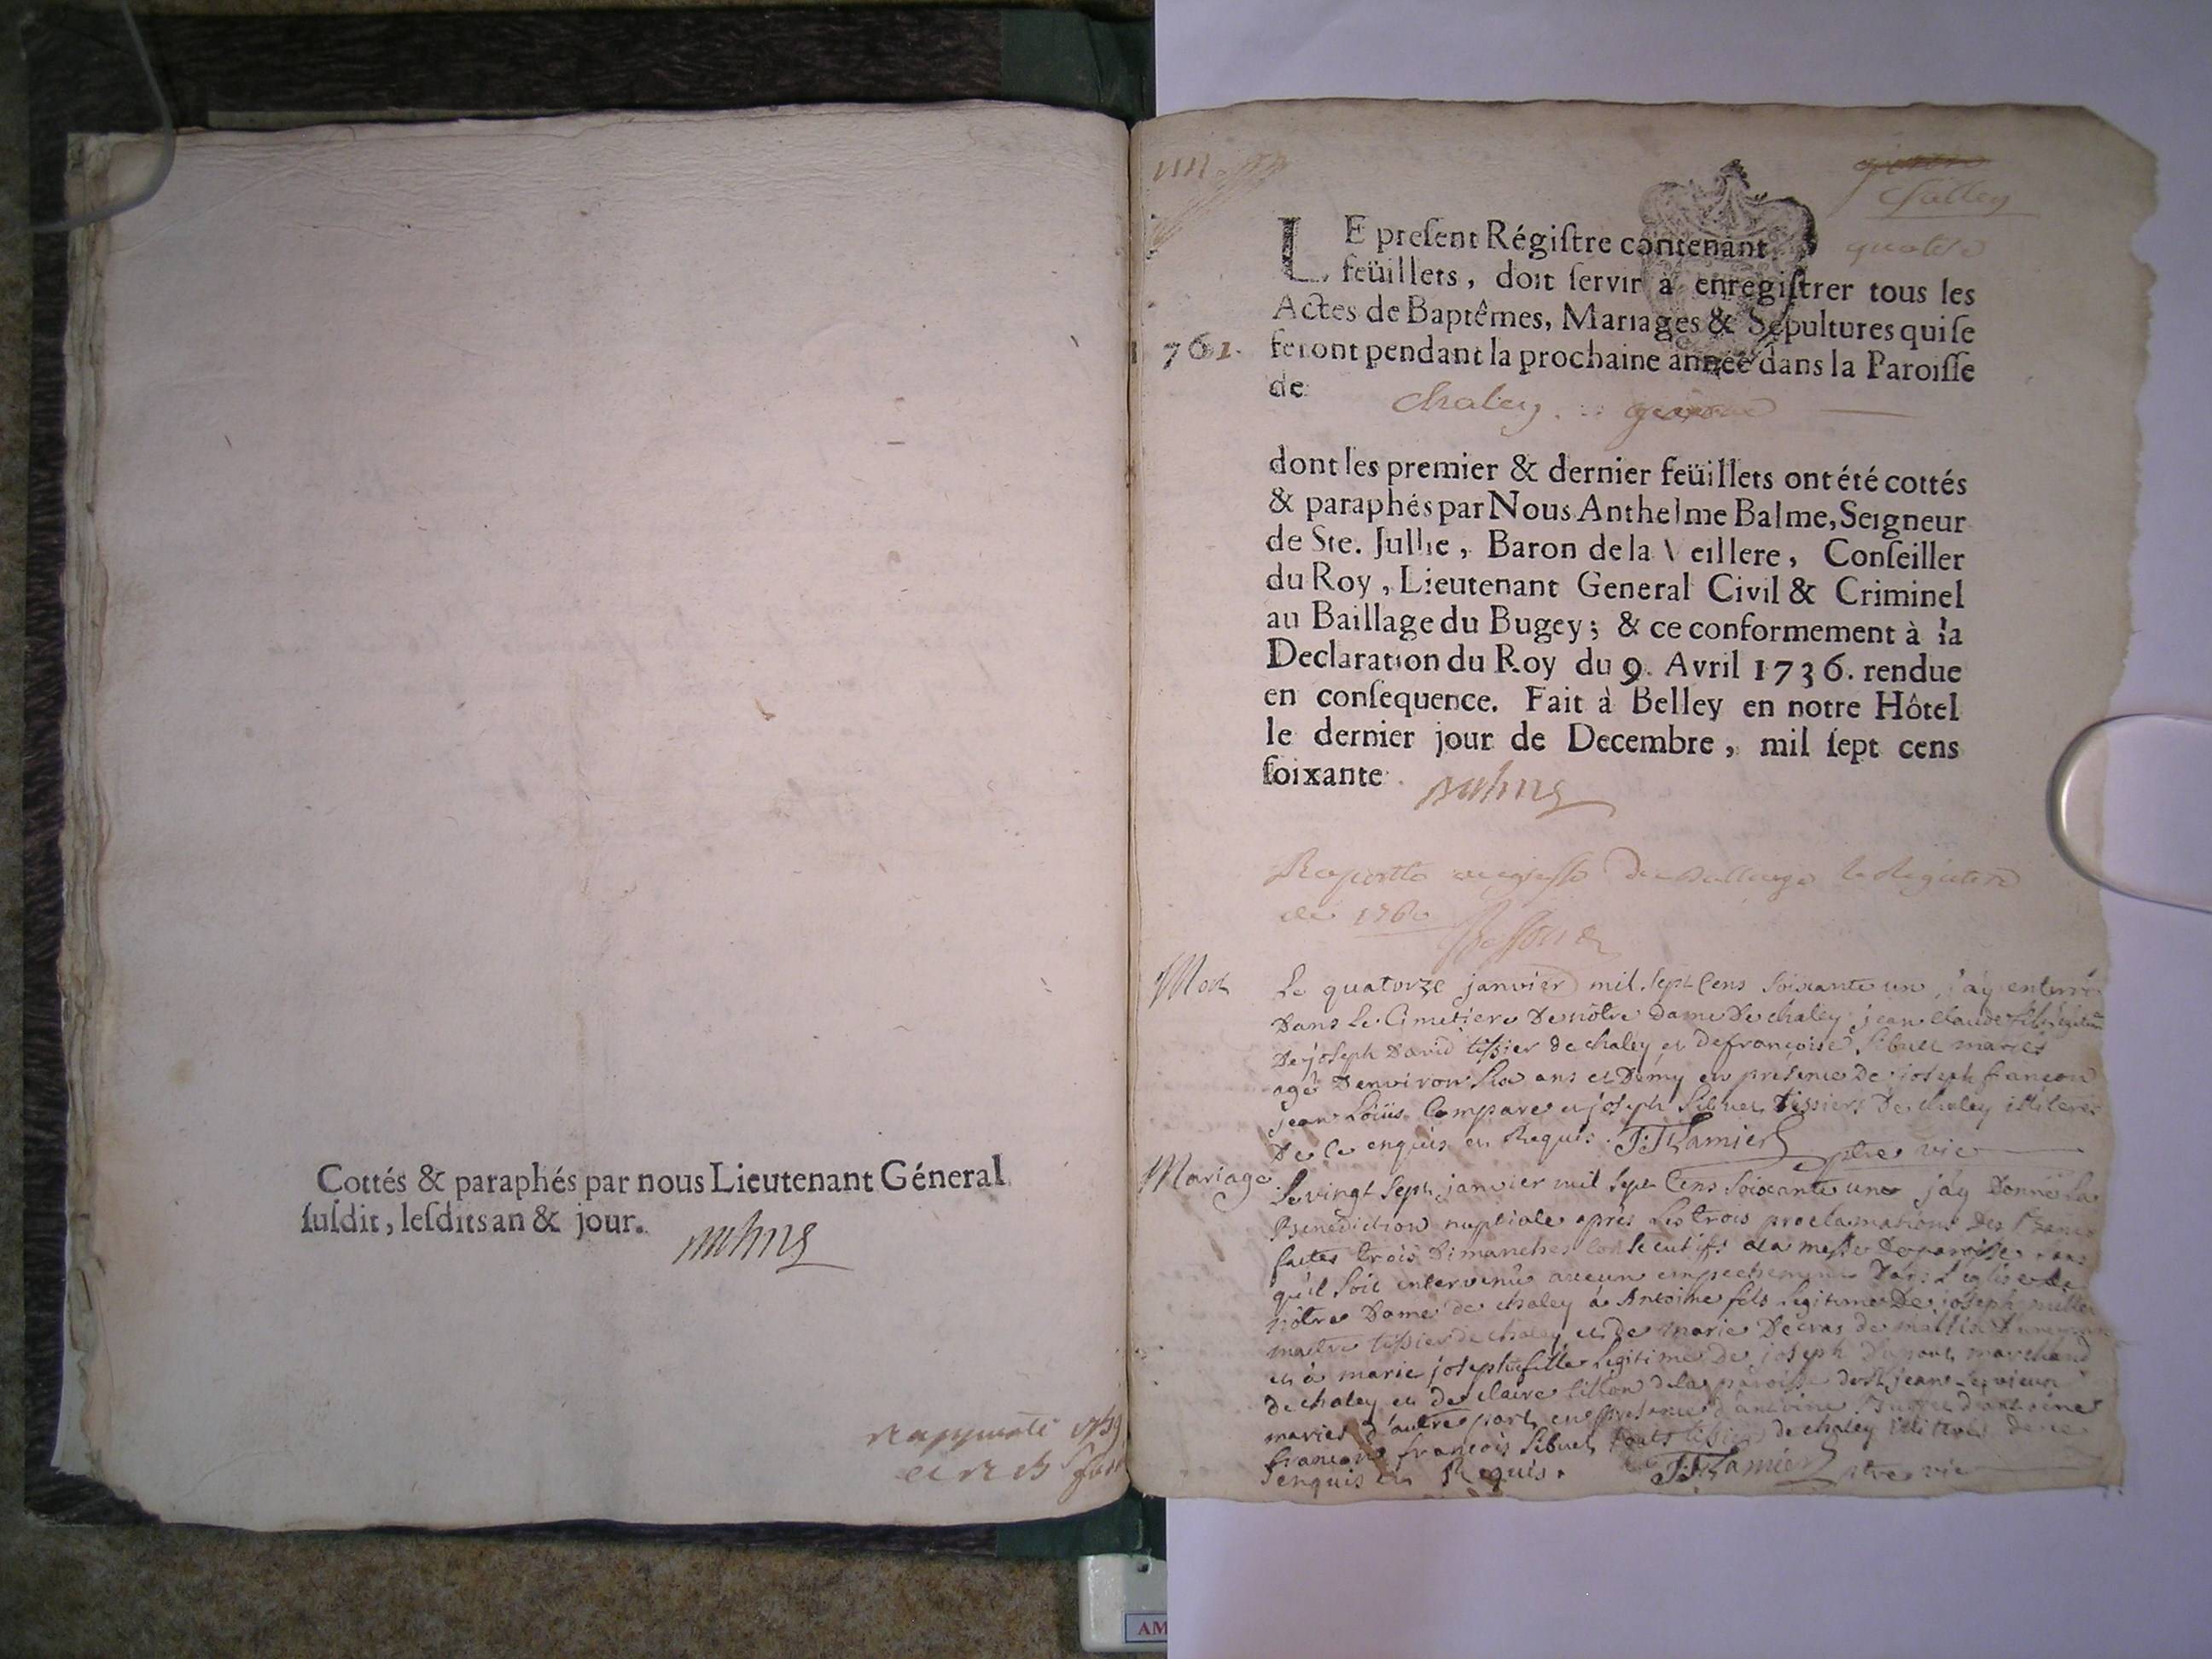 Cottés & paraphés par nous Lieutenant Géneral
ſuſdit, leſdits an & jour.
Challey
quatre
LE preſent Régiſtre contenant
feüillets, doit ſervir à enregiſtrer tous les
Actes de Baptêmes, Mariages & Sépultures qui ſe
1761. feront pendant la prochaine année dans la Paroiſſe
de chaley
dont les premier & dernier feüillets ont été cottés
& paraphés par Nous Anthelme Balme, Seigneur
de Ste. Jullie, Baron de la Veillere, Conſeiller
du Roy, Lieutenant General Civil & Criminel
au Baillage du Bugey; & ce conformement à la
Declaration du Roy du 9. Avril 1736. rendue
en conſequence. Fait à Belley en notre Hôtel
le dernier jour de Decembre, mil ſept cens
ſoixante
de 1760
Mort Le quatorze janvier mil sept Cens soixante un, j'ay enterré
Dans Le Cimetiere De nôtre Dame De chaley jean Claude fils
De joseph David tissier de chaley et De françoise Sibuet mariés
agé D'environ six ans et Demy en presence De joseph françon
jean Loüis Compare et joseph Sibuet tissiers De chaley illiterés
De ce enquis et Requis. ptre vic
Mariage Le vingt sept janvier mil sept Cens soixante un j'ay Donné La
Benediction nuptiale aprés Les trois proclamations Des
faites trois Dimanches consecutifs a la messe De paroisse sans
qu'il soit intervenû aucun empechement Dans L'eglise de
nôtre Dame de chaley à Antoine fils Legitime De joseph
maitre tissier de chaley et de marie
et à marie josephe fille Legitime De joseph Dupont marchand
de chaley et de claire de la paroisse de St jean le vieux
mariés d'autre part en presence d'antoine
françon françois Sibuet touts tissiers de chaley illiterés de ce
enquis et Requis. ptre vic